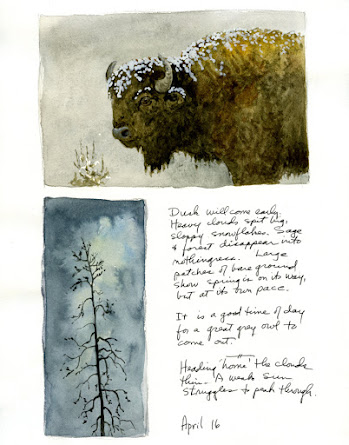 Dusk will come early.
Heavy clouds spit big,
sloppy snowflakes. Sage
& forest disappear into
nothingness. Large
patches of bare ground
show spring is on its way,
but at its own pace.
It is a good time of day
for a great grey owl to
come out.
Heading "home" the clouds
thin. A weak sun
struggles to peak through.
April 16